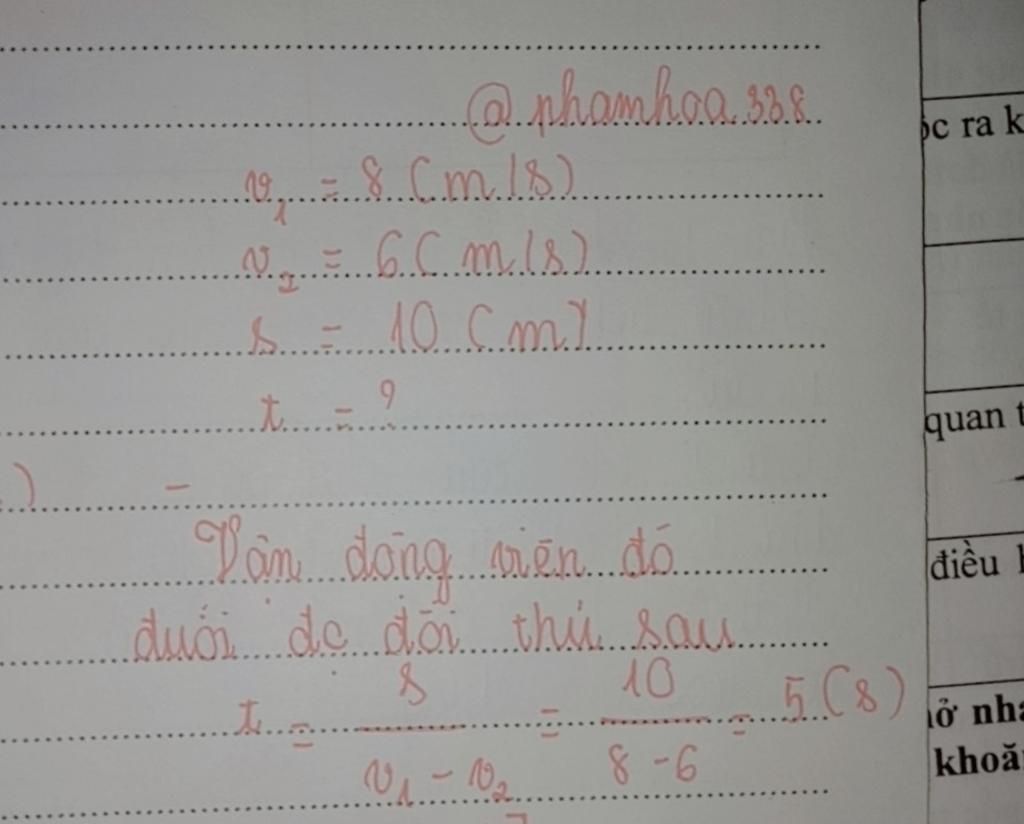 @phamhoa338
v₁ = 8 (m/s)
v₂ = 6 (m/s)
s = 10 (m)
t = ?
) -
Vận động viên đó
đuổi đc đối thủ sau
t = s / (v₁ - v₂) = 10 / (8 - 6) = 5 (s)
ọc ra k
quan t
điều
ở nh
khoă